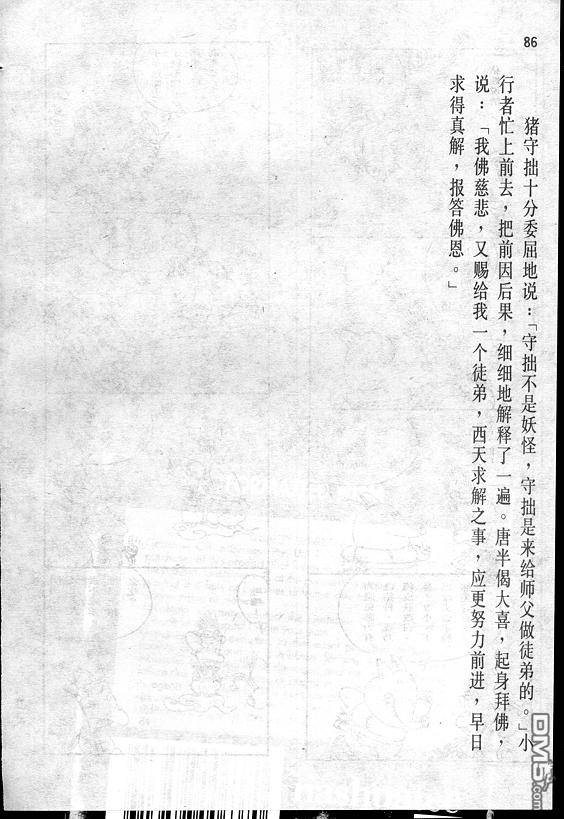 86
猪守拙十分委屈地说：「守拙不是妖怪，守拙是来给师父做徒弟的。」小
行者忙上前去，把前因后果，细细地解释了一遍。唐半偈大喜，起身拜佛，
说：「我佛慈悲，又赐给我一个徒弟，西天求解之事，应更努力前进，早日
求得真解，报答佛恩。」
DM5